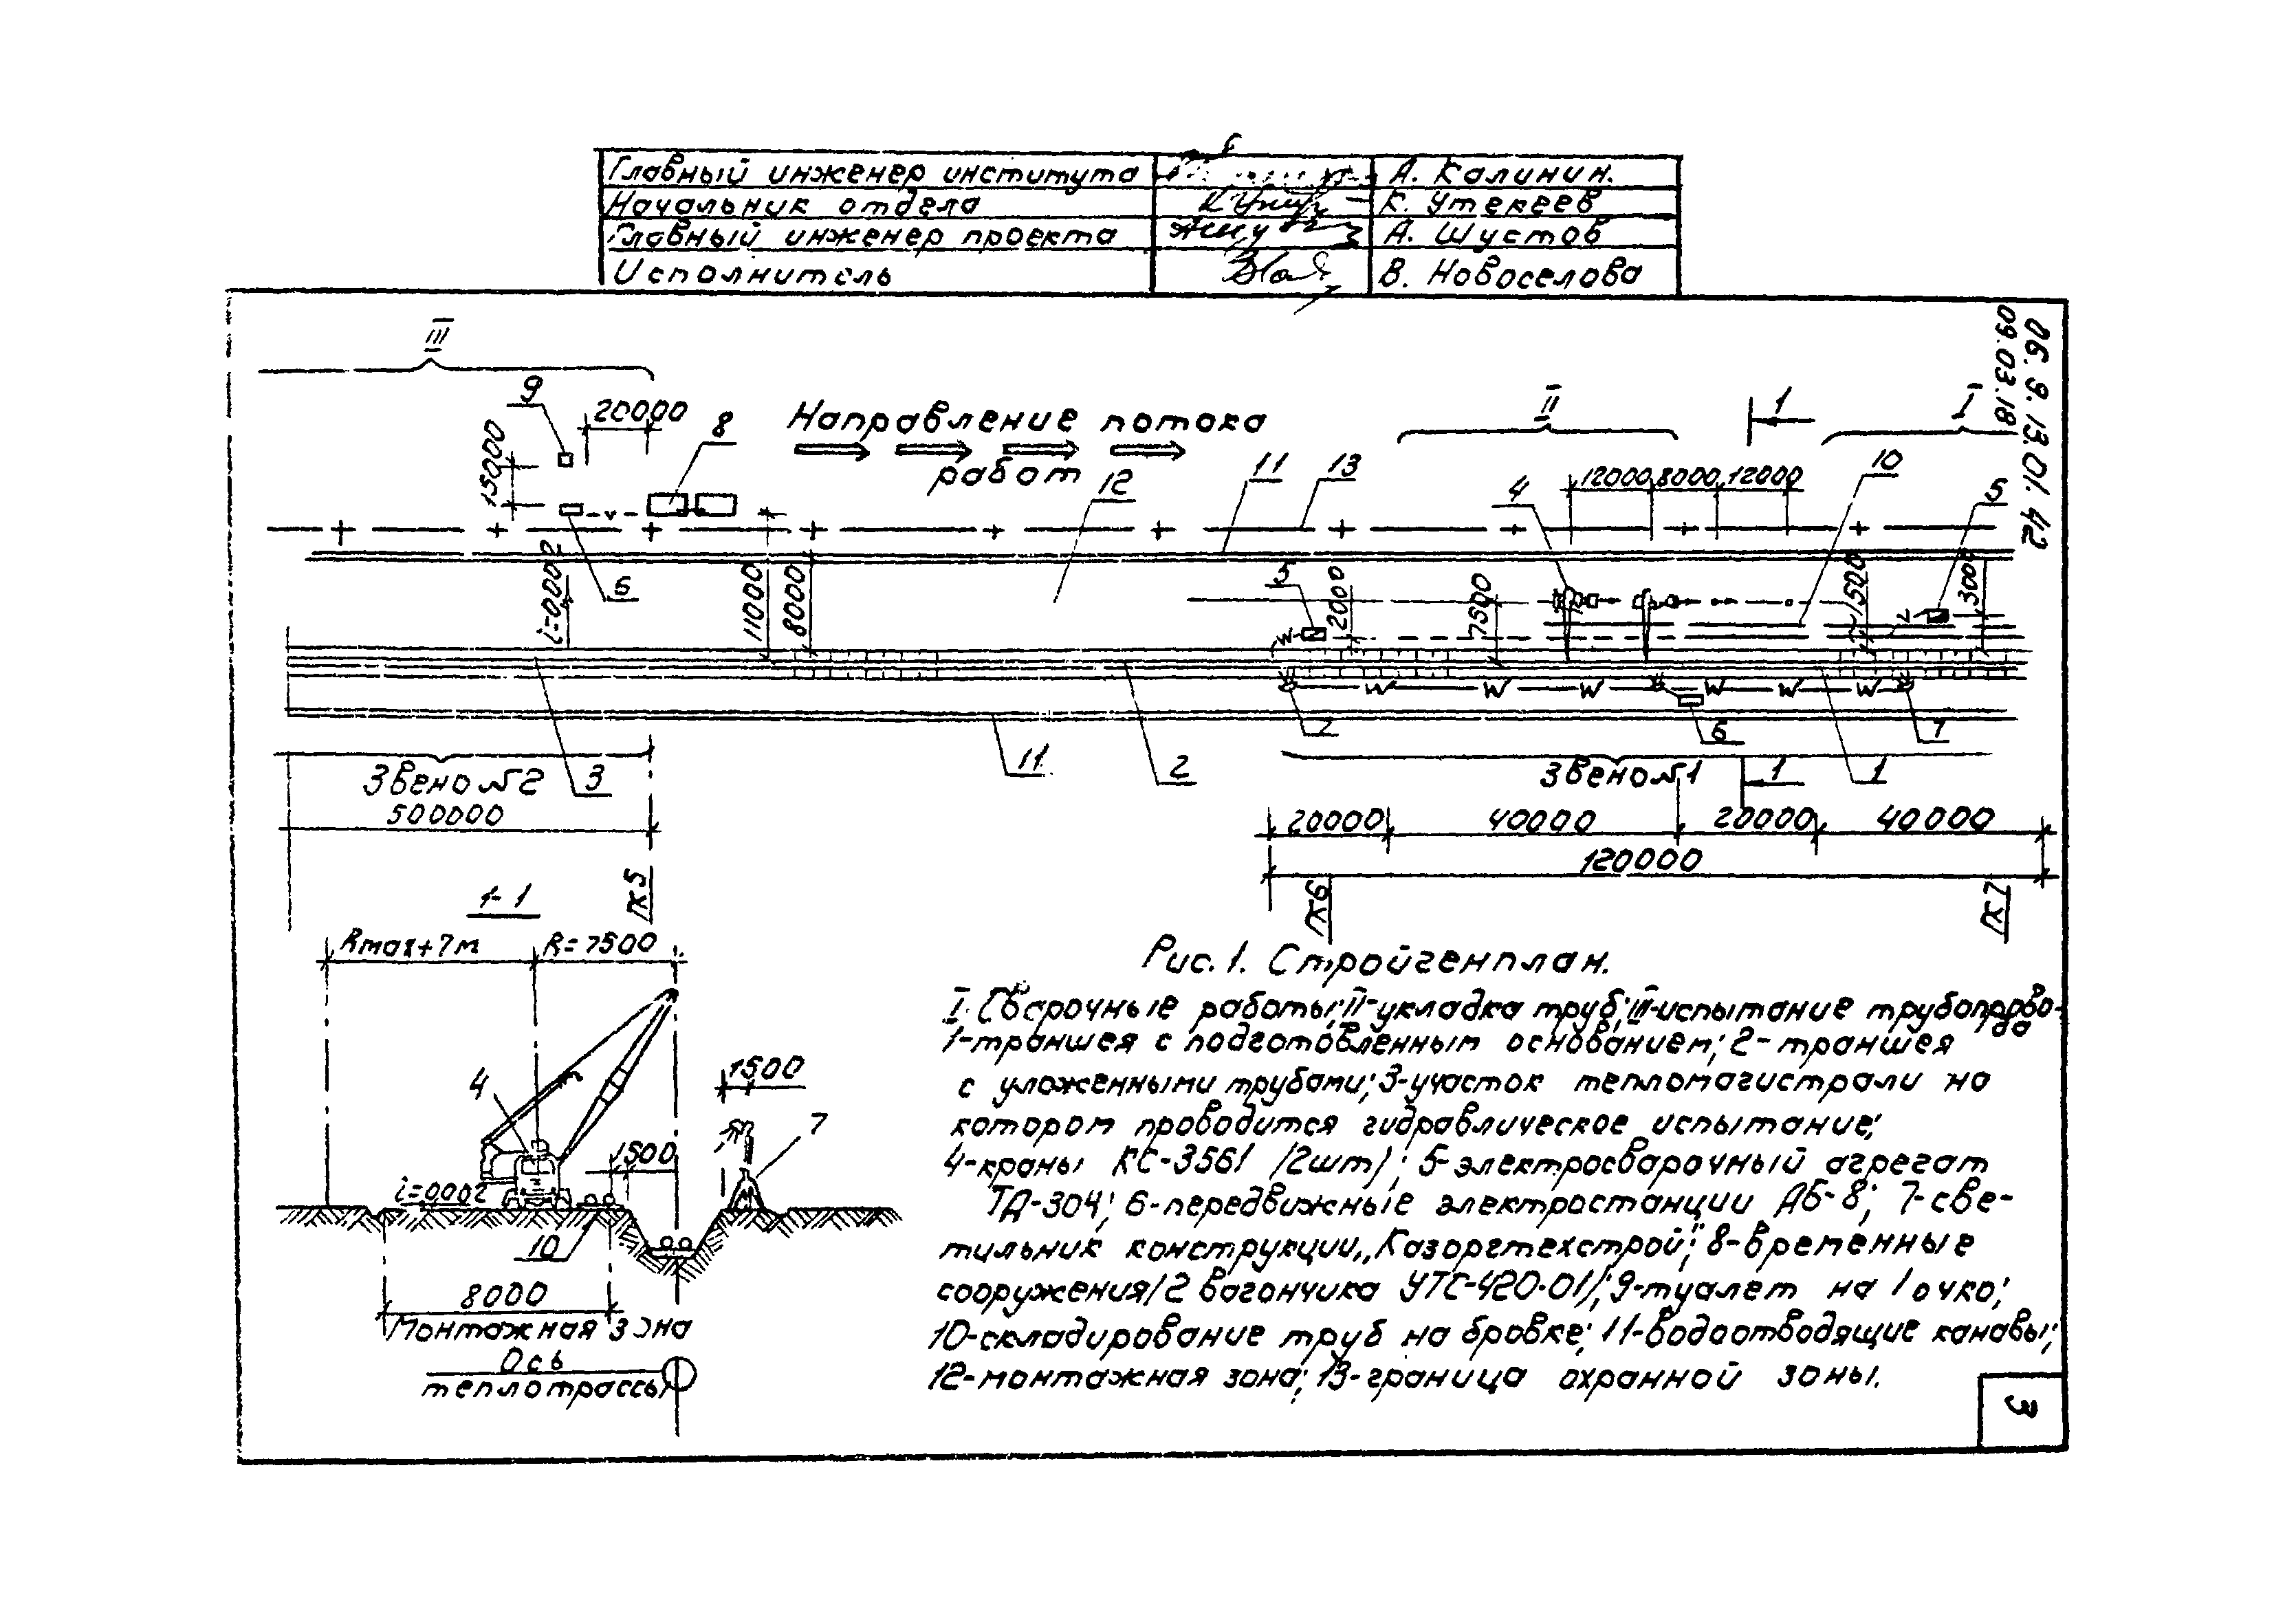 Главный инженер института А. Калинин.
Начальник отдела К. Утекеев
Главный инженер проекта А. Шустов
Исполнитель В. Новоселова
06. 9. 13. 01. 42
09.03.18
III
9
20000
8
15000
Направление потока
работ
12
11
13
II
1
I
4
12000 8000 12000
10
5
i=0002
6
11000
8000
5
2000
7500
1500
3000
3
11
2
7
6
7
1
1
Звено №2
Звено №1
500000
20000 40000 20000 40000
120000
ПК5
ПК6
ПК7
1-1
Rmax+7м
R=7500
4
1500
1500
7
i=0002
10
8000
Монтажная зона
Ось
теплотрассы
Рис. 1. Стройгенплан.
I. Сварочные работы; II-укладка труб; III-испытание трубопрово-
да
1-траншея с подготовленным основанием; 2-траншея
с уложенными трубами; 3-участок тепломагистрали на
котором проводится гидравлическое испытание;
4-краны КС-3561 /2шт/; 5-электросварочный агрегат
ТД-304; 6-передвижные электростанции АБ-8; 7-све-
тильник конструкции „Казоргтехстрой"; 8-временные
сооружения /2 вагончика УТС-420-01/; 9-туалет на 1 очко;
10-складирование труб на бровке; 11-водоотводящие канавы;
12-монтажная зона; 13-граница охранной зоны.
3